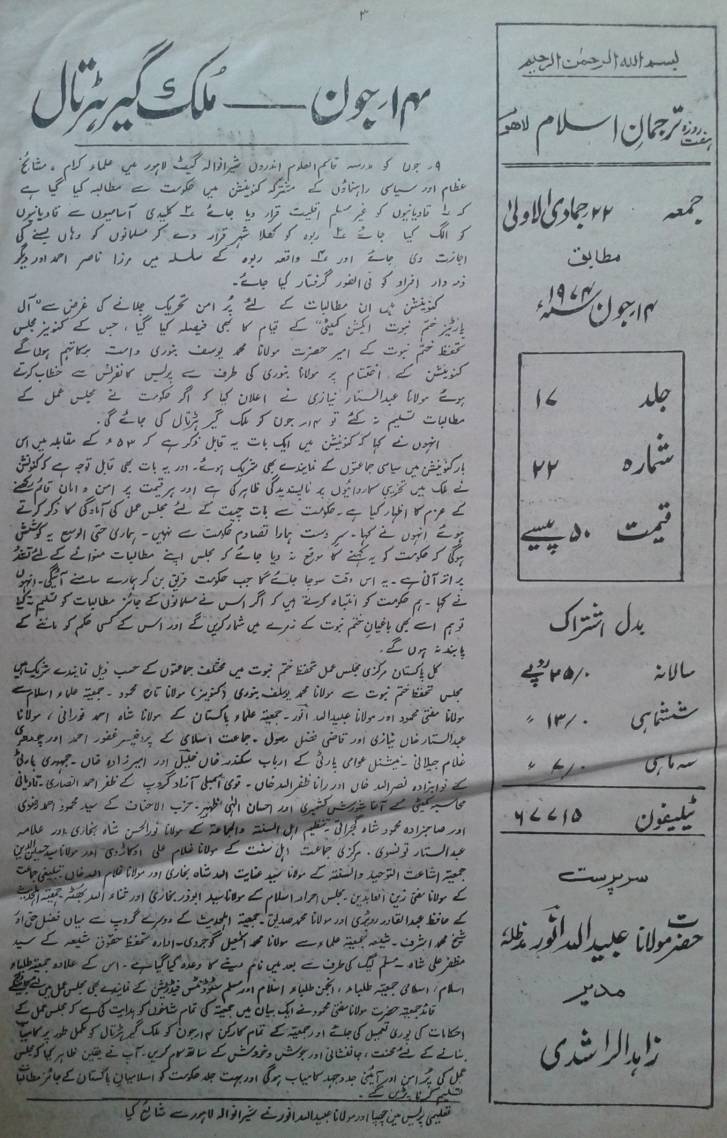 ۳
بسم اللہ الرحمٰن الرحیم
ہفت روزہ ترجمان اسلام لاہور
جمعہ ۲۲ جمادی الاولیٰ
مطابق
۱۴ جون ۱۹۷۴ء
جلد ۱۷
شمارہ ۲۲
قیمت ۵۰ پیسے
بدل اشتراک
سالانہ ۲۵/۰ روپے
ششماہی ۱۳/۰ ″
سہ ماہی ۷/۰ ″
ٹیلیفون ۶۷۷۱۵
سرپرست
حضرت مولانا عبید اللہ انور مدظلہ
مدیر
زاہد الراشدی
۱۴ جون — ملک گیر ہڑتال
۹ جون کو مدرسہ قاسم العلوم اندرون شیرانوالہ گیٹ لاہور میں علماء کرام، مشائخ
عظام اور سیاسی راہنماؤں کے مشترکہ کنونشن میں حکومت سے مطالبہ کیا گیا ہے
کہ ۱؎ قادیانیوں کو غیر مسلم اقلیت قرار دیا جائے ۲؎ کلیدی آسامیوں سے قادیانیوں
کو الگ کیا جائے ۳؎ ربوہ کو کھلا شہر قرار دے کر مسلمانوں کو وہاں بسنے کی
اجازت دی جائے اور ۴؎ واقعہ ربوہ کے سلسلہ میں مرزا ناصر احمد اور دیگر
ذمہ دار افراد کو فی الفور گرفتار کیا جائے۔
کنونشن میں ان مطالبات کے لئے پُر امن تحریک چلانے کی غرض سے "آل
پارٹیز ختم نبوت ایکشن کمیٹی" کے قیام کا بھی فیصلہ کیا گیا، جس کے کنوینر مجلس
تحفظ ختم نبوت کے امیر حضرت مولانا محمد یوسف بنوری دامت برکاتہم ہوں گے
کنونشن کے اختتام پر مولانا بنوری کی طرف سے پریس کانفرنس سے خطاب کرتے
ہوئے مولانا عبدالستار نیازی نے اعلان کیا کہ اگر حکومت نے مجلس عمل کے
مطالبات تسلیم نہ کئے تو ۱۴ جون کو ملک گیر ہڑتال کی جائے گی۔
انہوں نے کہا کہ کنونشن میں ایک بات یہ قابل ذکر ہے کہ ۵۳ء کے مقابلہ میں اس
بار کنونشن میں سیاسی جماعتوں کے نمایندے بھی شریک ہوئے۔ اور یہ بات بھی قابل توجہ ہے کہ کنونشن
نے ملک میں تخریبی کارروائیوں پر ناپسندیدگی ظاہر کی ہے اور ہر قیمت پر امن و امان قائم رکھنے
کے عزم کا اظہار کیا ہے۔ حکومت سے بات چیت کے لئے مجلس عمل کی آمادگی کا ذکر کرتے
ہوئے انہوں نے کہا۔ سر دست ہمارا تصادم حکومت سے نہیں۔ ہماری حتی الوسع یہ کوشش
ہوگی کہ حکومت کو یہ کہنے کا موقع نہ دیا جائے کہ مجلس اپنے مطالبات منوانے کے لئے تشدد
پر اتر آئی ہے۔ یہ اس وقت سوچا جائے گا جب حکومت فریق بن کر ہمارے سامنے آئیگی۔ انہوں
نے کہا۔ ہم حکومت کو انتباہ کرتے ہیں کہ اگر اس نے مسلمانوں کے جائز مطالبات کو تسلیم نہ کیا
تو ہم اسے بھی باغیان ختم نبوت کے زمرے میں شمار کریں گے اور اس کے کسی حکم کو ماننے کے
پابند نہ ہوں گے۔
کل پاکستان مرکزی مجلس عمل تحفظ ختم نبوت میں مختلف جماعتوں کے حسب ذیل نمایندے شریک ہیں
مجلس تحفظ ختم نبوت سے مولانا محمد یوسف بنوری (کنوینر) مولانا تاج محمود۔ جمعیۃ علماء اسلام سے
مولانا مفتی محمود اور مولانا عبید اللہ انور۔ جمعیۃ علماء پاکستان کے مولانا شاہ احمد نورانی، مولانا
عبدالستار خاں نیازی اور قاضی فضل رسول۔ جماعت اسلامی کے پروفیسر غفور احمد اور چودھری
غلام جیلانی۔ نیشنل عوامی پارٹی کے ارباب سکندر خاں خلیل اور امیر زادہ خاں۔ جمہوری پارٹی
کے نوابزادہ نصر اللہ خاں اور رانا ظفر اللہ خاں۔ قومی اسمبلی آزاد گروپ کے ظفر احمد انصاری۔ قادیانی
محاسبہ کمیٹی کے آغا شورش کشمیری اور احسان الٰہی ظہیر۔ حزب الاحناف کے سید محمود احمد رضوی
اور صاحبزادہ محمود شاہ گجراتی تنظیم اہل السنۃ والجماعۃ کے مولانا نور الحسن شاہ بخاری اور علامہ
عبدالستار تونسوی۔ مرکزی جماعت اہل سنت کے مولانا غلام علی اوکاڑوی اور مولانا سید حسین الدین
جمعیۃ اشاعت التوحید والسنۃ کے مولانا سید عنایت اللہ شاہ بخاری اور مولانا غلام اللہ خاں تبلیغی جماعت
کے مولانا مفتی زین العابدین۔ مجلس احرار اسلام کے مولانا سید ابوذر بخاری اور ثناء اللہ بھٹہ جمعیۃ اہلحدیث
کے حافظ عبدالقادر روپڑی اور مولانا محمد صدیق۔ جمعیۃ اہلحدیث کے دوسرے گروپ سے میاں فضل حق اور
شیخ محمد اشرف۔ شیعہ جمعیۃ علماء سے مولانا محمد اسمٰعیل گوجروی۔ ادارہ تحفظ حقوق شیعہ کے سید
مظفر علی شاہ۔ مسلم لیگ کی طرف سے بعد میں نام دینے کا وعدہ کیا گیا ہے۔ اس کے علاوہ جمعیۃ طلباء
اسلام، اسلامی جمعیۃ طلباء، انجمن طلباء اسلام اور مسلم سٹوڈنٹس فیڈریشن کے نمایندے بھی مجلس عمل میں لئے جائینگے
قائد جمعیۃ حضرت مولانا مفتی محمود نے ایک بیان میں جمعیۃ کی تمام شاخوں کو ہدایت کی ہے کہ مجلس عمل کے
احکامات کی پوری تعمیل کی جائے اور جمعیۃ کے تمام کارکن ۱۴ جون کو ملک گیر ہڑتال کو مکمل طور پر کامیاب
بنانے کے لئے محنت، جانفشانی اور جوش و خروش کے ساتھ کام کریں۔ آپ نے یقین ظاہر کیا کہ مجلس
عمل کی پُر امن اور آئینی جدوجہد کامیاب ہوگی اور بہت جلد حکومت کو اسلامیان پاکستان کے جائز مطالبات
تسلیم کرنا پڑیں گے۔
تعلیمی پریس میں چھپا اور مولانا عبید اللہ انور نے شیرانوالہ لاہور سے شائع کیا